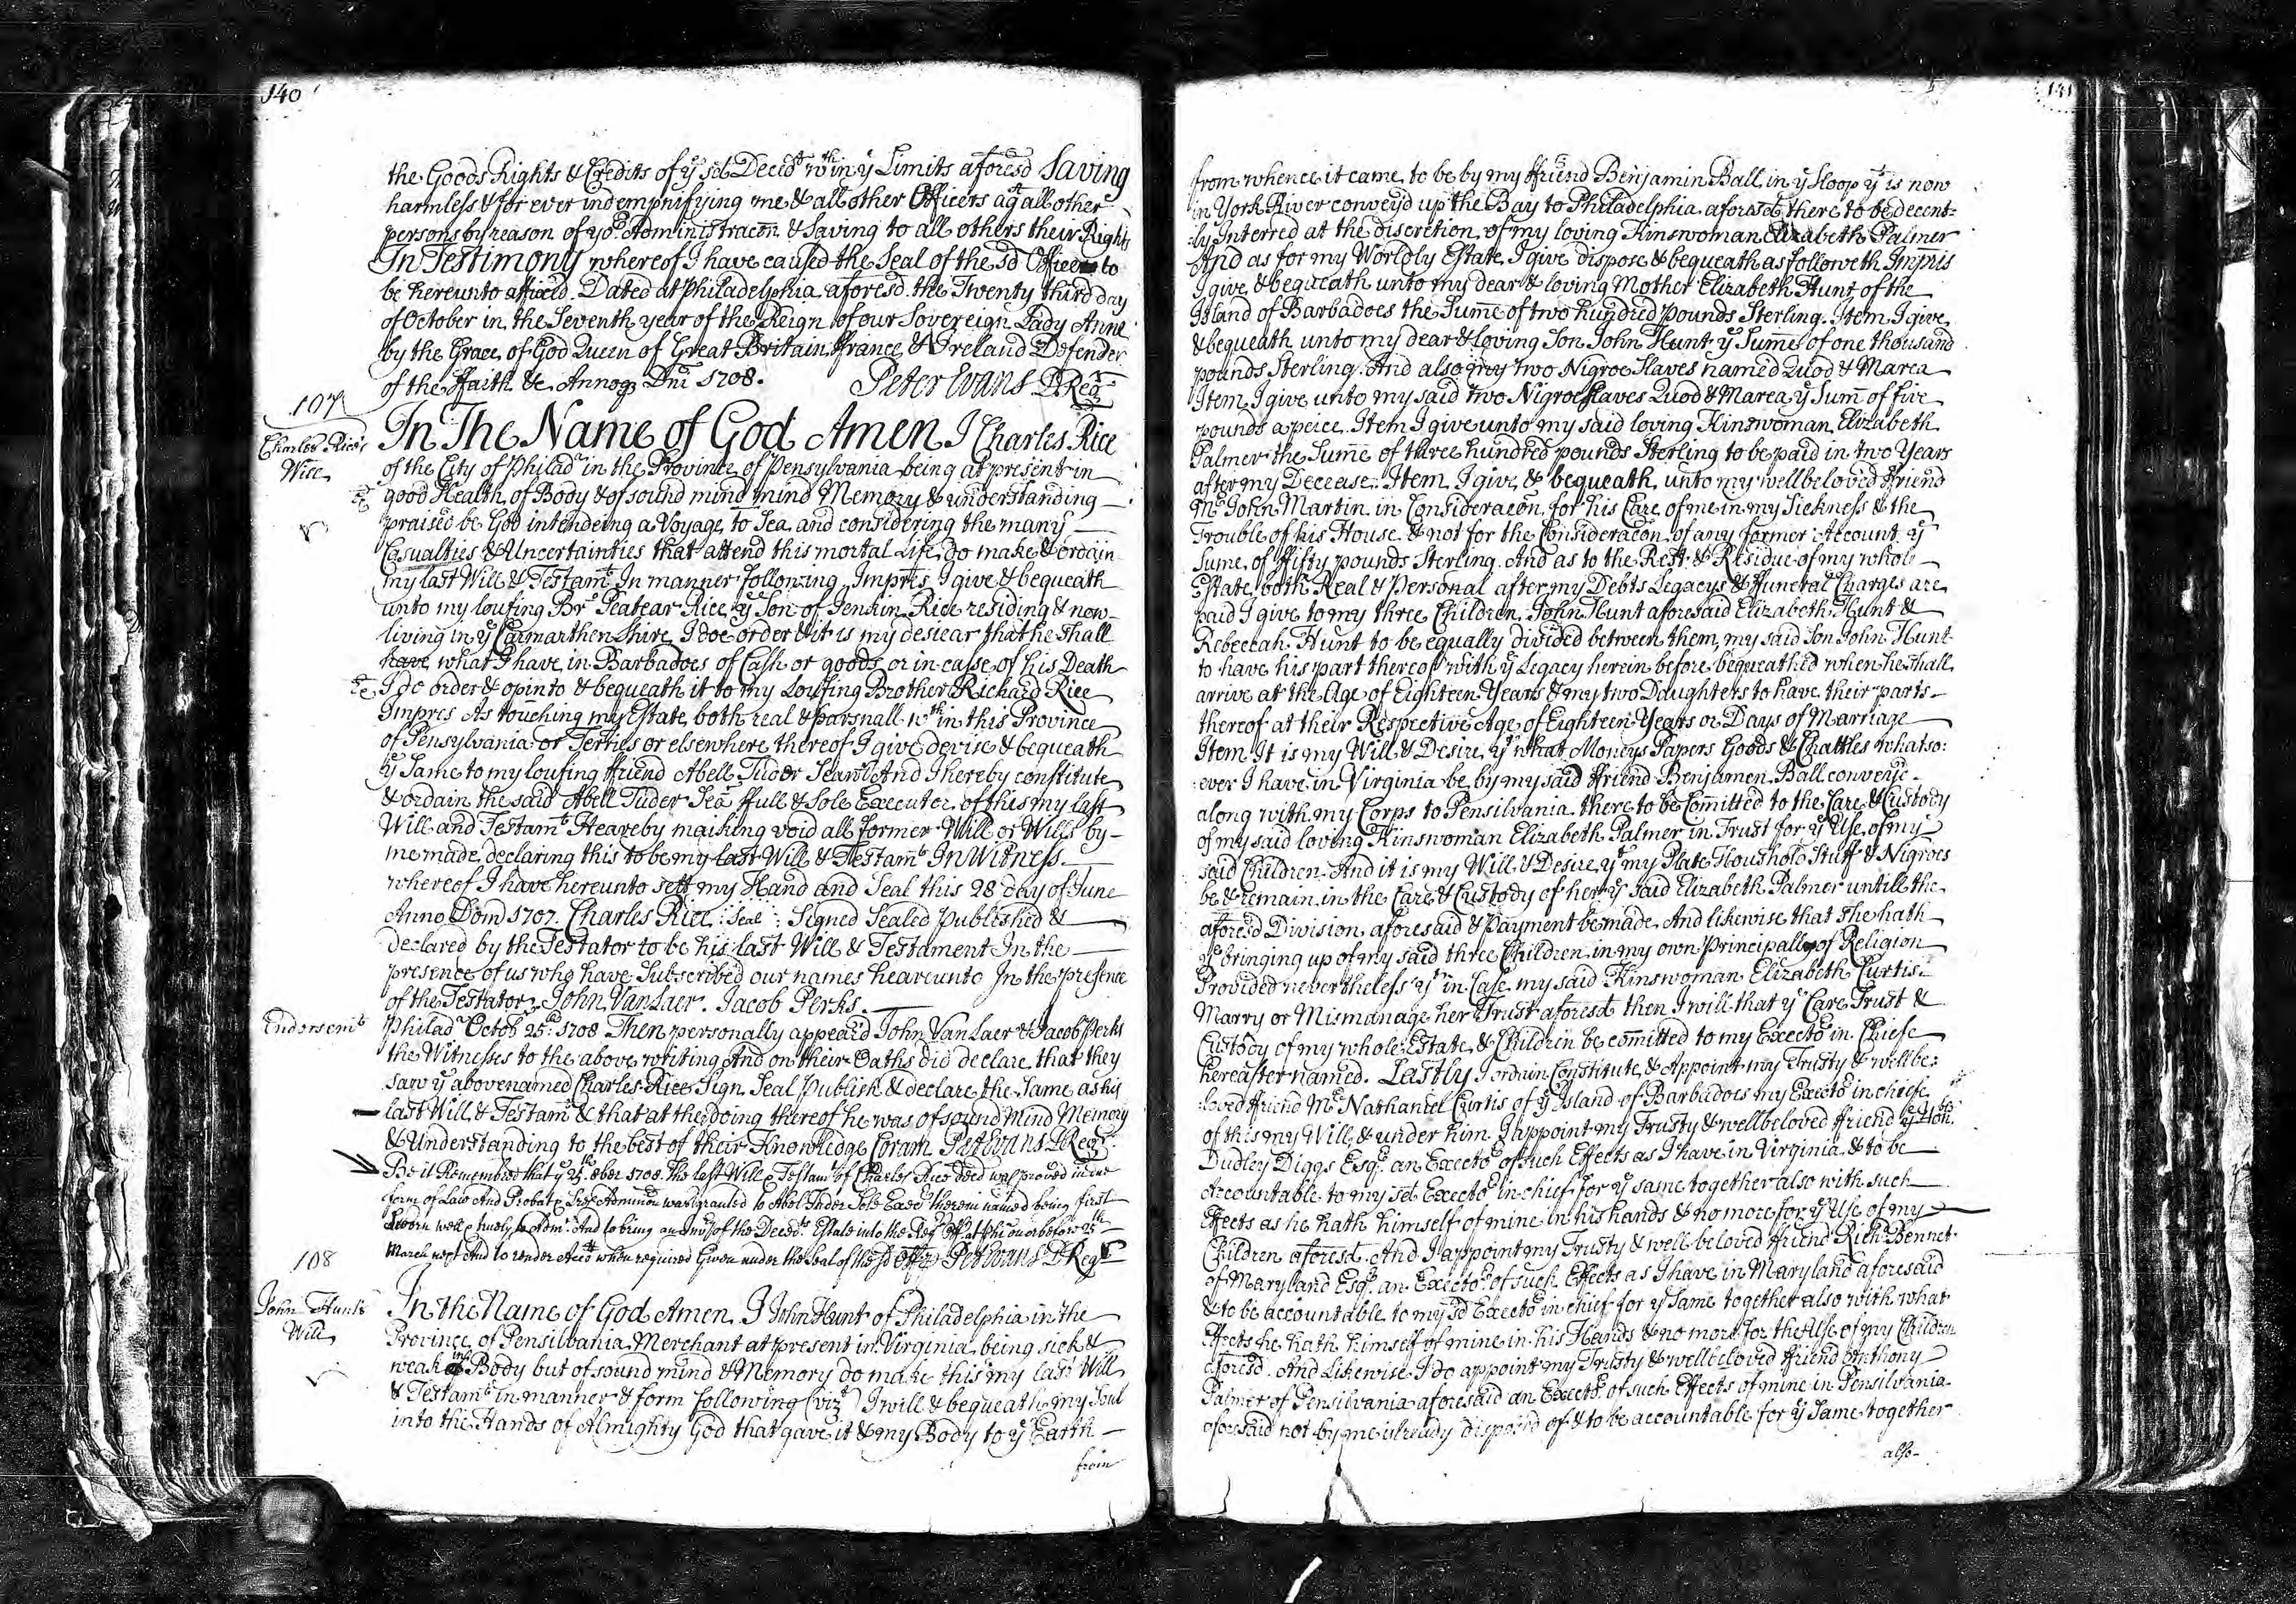 140
the Goods Rights & Credits of yͤ sd Decedᵗ wᵗʰin yͤ Limits aforesd Saving
harmless & for ever indempnifying me & all other Officers agᵗ all other
persons by reason of yoʳ Administracon & Saving to all others their Right
In Testimony whereof I have caused the Seal of the sd Office to
be hereunto affixed. Dated at Philadelphia aforesd the Twenty third day
of October in the Seventh year of the Reign of our Sovereign Lady Anne
by the Grace of God Queen of Great Britain ffrance & Ireland Defender
of the ffaith &c Annoq Dni 1708. Peter Evans D Regʳ
107
Charles Rice's
Will
In The Name of God Amen I Charles Rice
of the City of Philadᵃ in the Province of Pensylvania being at present in
good Health of Body & of sound mind mind Memory & understanding
praised be God intendeing a Voyage to Sea and considering the many
Casualties & Uncertainties that attend this mortal Life do make & ordain
my last Will & Testamᵗ In manner following Impʳis I give & bequeath
unto my loufing Brʳ Peatear Rice yͤ Son of Jenkin Rice residing & now
living in yͤ Carmarthenshire I doe order & it is my desiear that he shall
have what I have in Barbadoes of Cash or goods or in casse of his Death
I do order & opinto & bequeath it to my Loufing Brother Richard Rice
Impres As touching my Estate both real & parsnall wᵗʰin this Province
of Pensylvania or Terries or elsewhere thereof I give devise & bequeath
yͤ Same to my loufing ffriend Abell Tuder And I hereby constitute
& ordain the said Abell Tuder ffull & Sole Executor of this my last
Will and Testamᵗ Heareby maiking void all former Will or Wills by
me made declaring this to be my last Will & Testamᵗ In Witness
whereof I have hereunto sett my Hand and Seal this 28 day of June
Anno Dom 1707. Charles Rice : Seal : Signed Sealed Published &
declared by the Testator to be his last Will & Testament In the
presence of us who have Subscribed our names heareunto In the presence
of the Testator, John Van Laer. Jacob Perks.
Endorsemᵗ
Philadᵃ Octobʳ 25: 1708 Then personally appeard John Van Laer & Jacob Perks
the Witnesses to the above writing And on their Oaths did declare that they
saw yͤ abovenamed Charles Rice Sign Seal Publish & declare the Same as his
last Will & Testamᵗ & that at the doing thereof he was of sound Mind Memory
& Understanding to the best of their Knowledge Coram Pet Evans D Regʳ
Be it Remembred that yͤ 25ᵗʰ 8ber 1708. The last Will & Testamᵗ of Charles Rice decd was proved in due
form of Law And Probate & was granted to Abel Tuder Sole Execʳ therein named being first
sworn well & truely to Admʳ And to bring an Invʸ of the Decedᵗˢ Estate into the Regʳ Off. at Phi on or before 25ᵗʰ
March next And to render Accᵗ when required Given under the Seal of the sd Office Pet Evans D Regʳ
108
John Hunt's
Will
In the Name of God Amen. I John Hunt of Philadelphia in the
Province of Pensilvania Merchant at present in Virginia being sick &
weak in Body but of sound mind & Memory do make this my last Will
& Testamᵗ in manner & form following (vizᵗ) I will & bequeath my Soul
into the Hands of Almighty God that gave it & my Body to yͤ Earth
from
141
from whence it came to be by my ffriend Benjamin Ball in yͤ Sloop yᵗ is now
in York River convey'd up the Bay to Philadelphia aforesd there to be decent=
:ly Interred at the discretion of my loving Kinswoman Elizabeth Palmer
And as for my Worldly Estate I give dispose & bequeath as followeth Impris
I give & bequeath unto my dear & loving Mother Elizabeth Hunt of the
Island of Barbadoes the Sume of two hundred pounds Sterling. Item I give
& bequeath unto my dear & loving Son John Hunt yͤ Sume of one thousand
pounds Sterling. And also my two Nigroe Slaves named Quod & Marea
Item I give unto my said two Nigroe Slaves Quod & Marea yͤ Sum of five
pounds apeice. Item I give unto my said loving Kinswoman Elizabeth
Palmer the Sume of three hundred pounds Sterling to be paid in two Years
after my Decease. Item I give & bequeath unto my wellbeloved ffriend
Mʳ John Martin in Consideracon for his Care of me in my Sickness & the
Trouble of his House & not for the Consideracon of any former Account yͤ
Sume of ffifty pounds Sterling. And as to the Rest & Residue of my whole
Estate both Real & Personal after my Debts Legacys & ffuneral Charges are
paid I give to my three Children John Hunt aforesaid Elizabeth Hunt &
Rebeccah Hunt to be equally divided between them, my said Son John Hunt
to have his part thereof with yͤ Legacy herein before bequeathed when he shall
arrive at the Age of Eighteen Years & my two Daughters to have their parts
thereof at their Respective Age of Eighteen Years or Days of Marriage
Item It is my Will & Desire yᵗ what Moneys Papers Goods & Chattles whatso:
:ever I have in Virginia be by my said ffriend Benjamen Ball convey'd
along with my Corps to Pensilvania there to be Comitted to the Care & Custody
of my said loving Kinswoman Elizabeth Palmer in Trust for yͤ Use of my
said Children. And it is my Will & Desire yᵗ my Plate Houshold Stuff & Nigroes
be & remain in the Care & Custody of her yͤ said Elizabeth Palmer untill the
aforesd Division aforesaid & Payment be made. And likewise that She hath
yͤ bringing up of my said three Children in my own Principally of Religion
Provided nevertheless yᵗ in Case my said Kinswoman Elizabeth Curtis
Marry or Mismanage her Trust aforesd then I will that yͤ Care Trust &
Custody of my whole Estate & Children be comitted to my Exectoʳ in Chiefe
hereafter named. Lastly I ordain Constitute & Appoint my Trusty & wellbe:
:loved ffriend Mʳ Nathaniel Curtis of yͤ Island of Barbadoes my Exectoʳ in chiefe
of this my Will & under him I appoint my Trusty & wellbeloved ffriend yͤ Honᵇˡᵉ
Dudley Diggs Esqʳ an Exectoʳ of such Effects as I have in Virginia & to be
Accountable to my sd Exectoʳ in chief for yͤ same together also with such
Effects as he hath himself of mine in his hands & no more for yͤ Use of my
Children aforesd. And I appoint my Trusty & well beloved ffriend Richᵈ Bennet
of Maryland Esqʳ an Exectoʳ of such Effects as I have in Maryland aforesaid
& to be accountable to my sd Exectoʳ in chief for yͤ Same together also with what
Effects he hath himself of mine in his Hands & no more for the Use of my Children
aforesd. And Likewise I do appoint my Trusty & wellbeloved ffriend Anthony
Palmer of Pensilvania aforesaid an Exectoʳ of such Effects of mine in Pensilvania
aforesaid not by me already disposed of & to be accountable for yͤ Same together
also